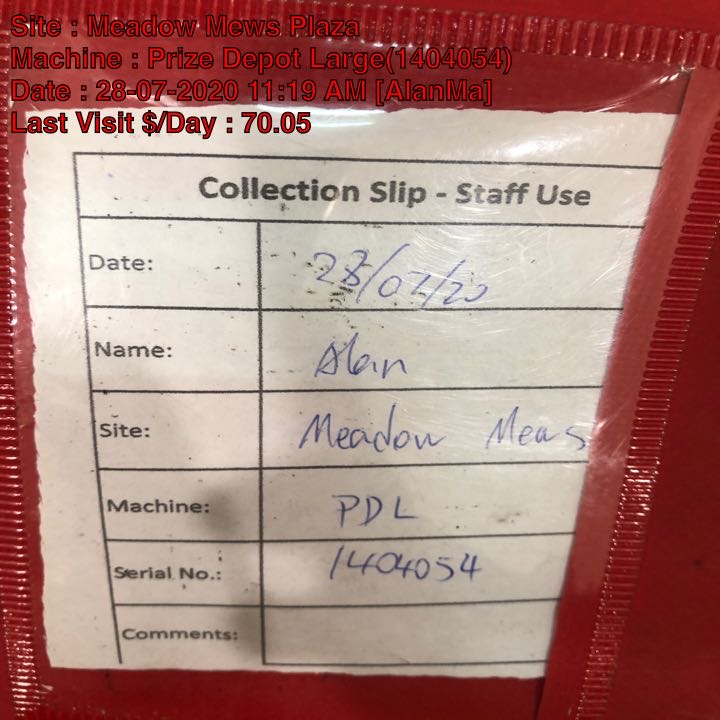 Site : Meadow Mews Plaza
Machine : Prize Depot Large(1404054)
Date : 28-07-2020 11:19 AM [AlanMa]
Last Visit $/Day : 70.05
Collection Slip - Staff Use
Date: 28/07/20
Name: Alan
Site: Meadow Mews
Machine: PDL
Serial No.: 1404054
Comments: